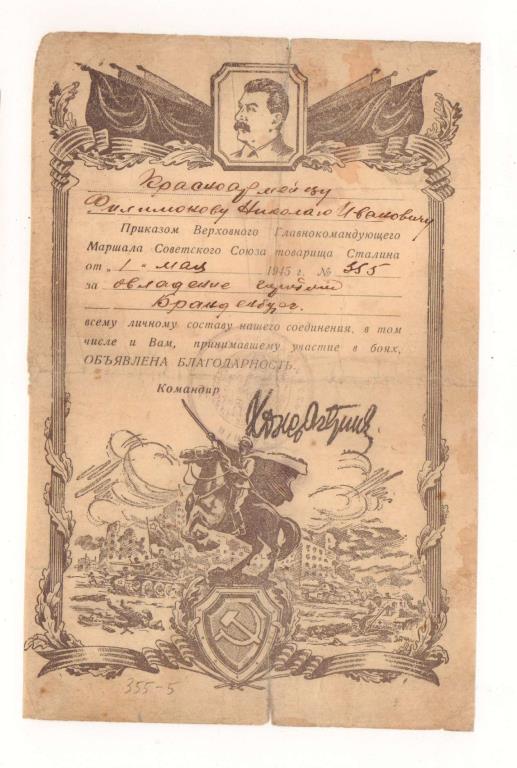 Красноармейцу
Филимонову Николаю Ивановичу
Приказом Верховного Главнокомандующего
Маршала Советского Союза товарища Сталина
от „1“ мая 1945 г. № 355
за овладение городом
Бранденбург.
всему личному составу нашего соединения, в том
числе и Вам, принимавшему участие в боях,
ОБЪЯВЛЕНА БЛАГОДАРНОСТЬ.
Командир
355-5